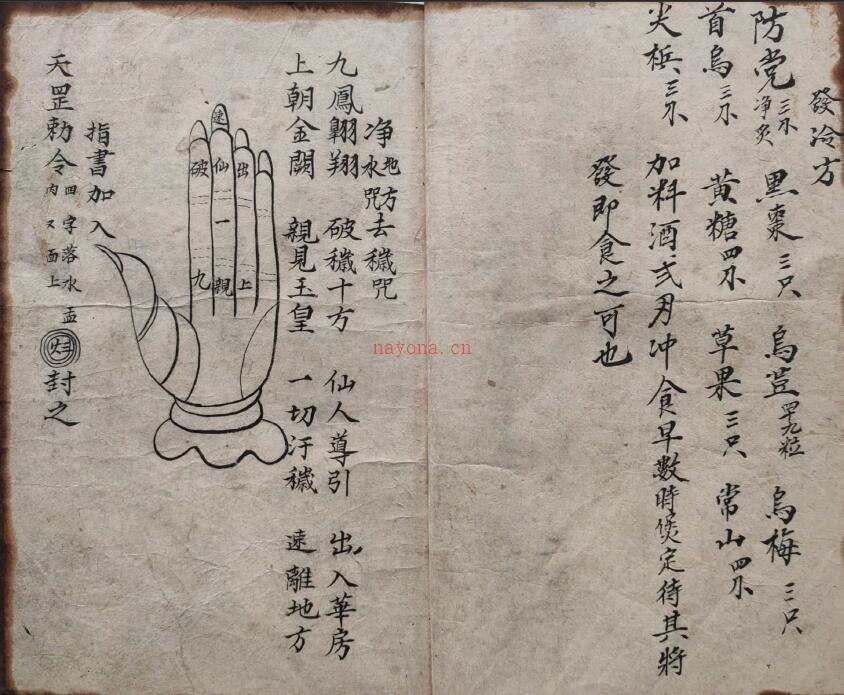 發冷方
防党三不净炙 黑棗三只 烏荳四十九粒 烏梅三只
首烏三不 黄糖四不 草果三只 常山四不
尖梹三不 加料酒弍另冲食早數時煲定待其將
發即食之可也
净水咒 地方去穢咒
九鳳翺翔 破穢十方 仙人導引 出入華房
上朝金闕 親見玉皇 一切汙穢 速離地方
速
破 仙 出
一
九 親 上
指書加入
天罡勅令四字落水盂内又面上 封之
nayona.cn